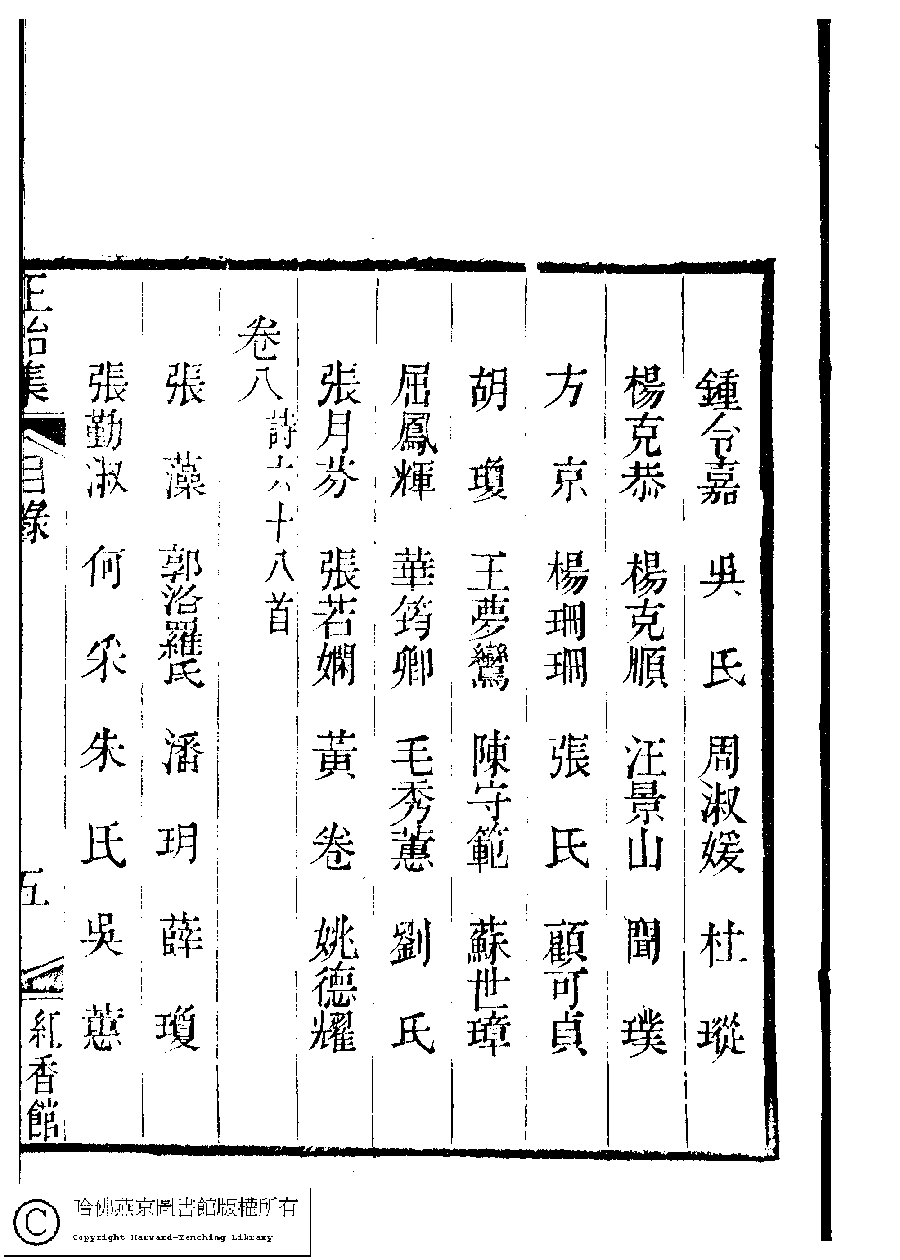 鍾令嘉 吳氏 周淑媛 杜瑽
楊克恭 楊克順 汪景山 聞璞
方京 楊珊珊 張氏 顧可貞
胡瓊 王夢鸞 陳守範 蘇世璋
屈鳳輝 華筠卿 毛秀蕙 劉氏
張月芬 張若嫻 黃卷 姚德耀
卷八 詩六十八首
張藻 郭洛羅氏 潘玥 薛瓊
張勤淑 何采 朱氏 吳蕙
正始集 目錄 五 紅香館
哈佛燕京圖書館版權所有
Copyright Harvard-Yenching Library